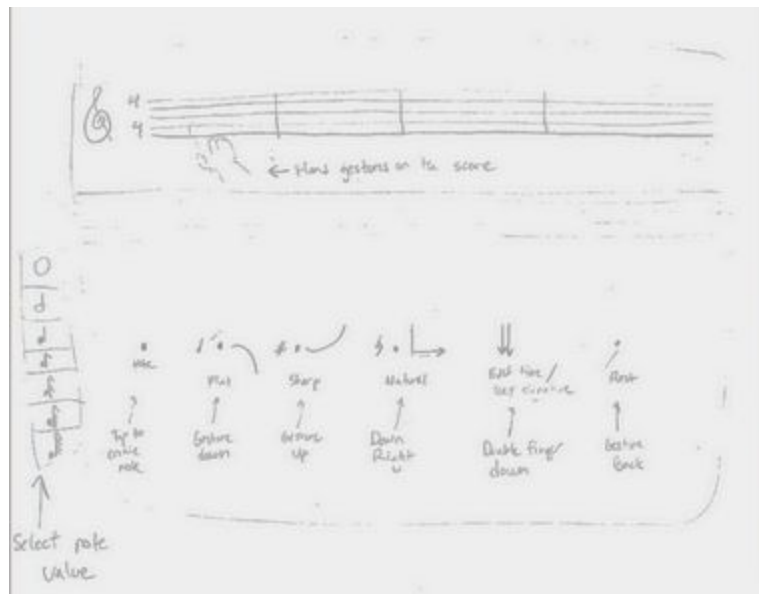 4
4
← Hand gestures on the score
Note
Flat
Sharp
Natural
Edit time/
key signature
Rest
Tap to
create
note
Gesture
down
Gesture
up
Down
Right
Double finger
down
Gesture
back
Select note
value